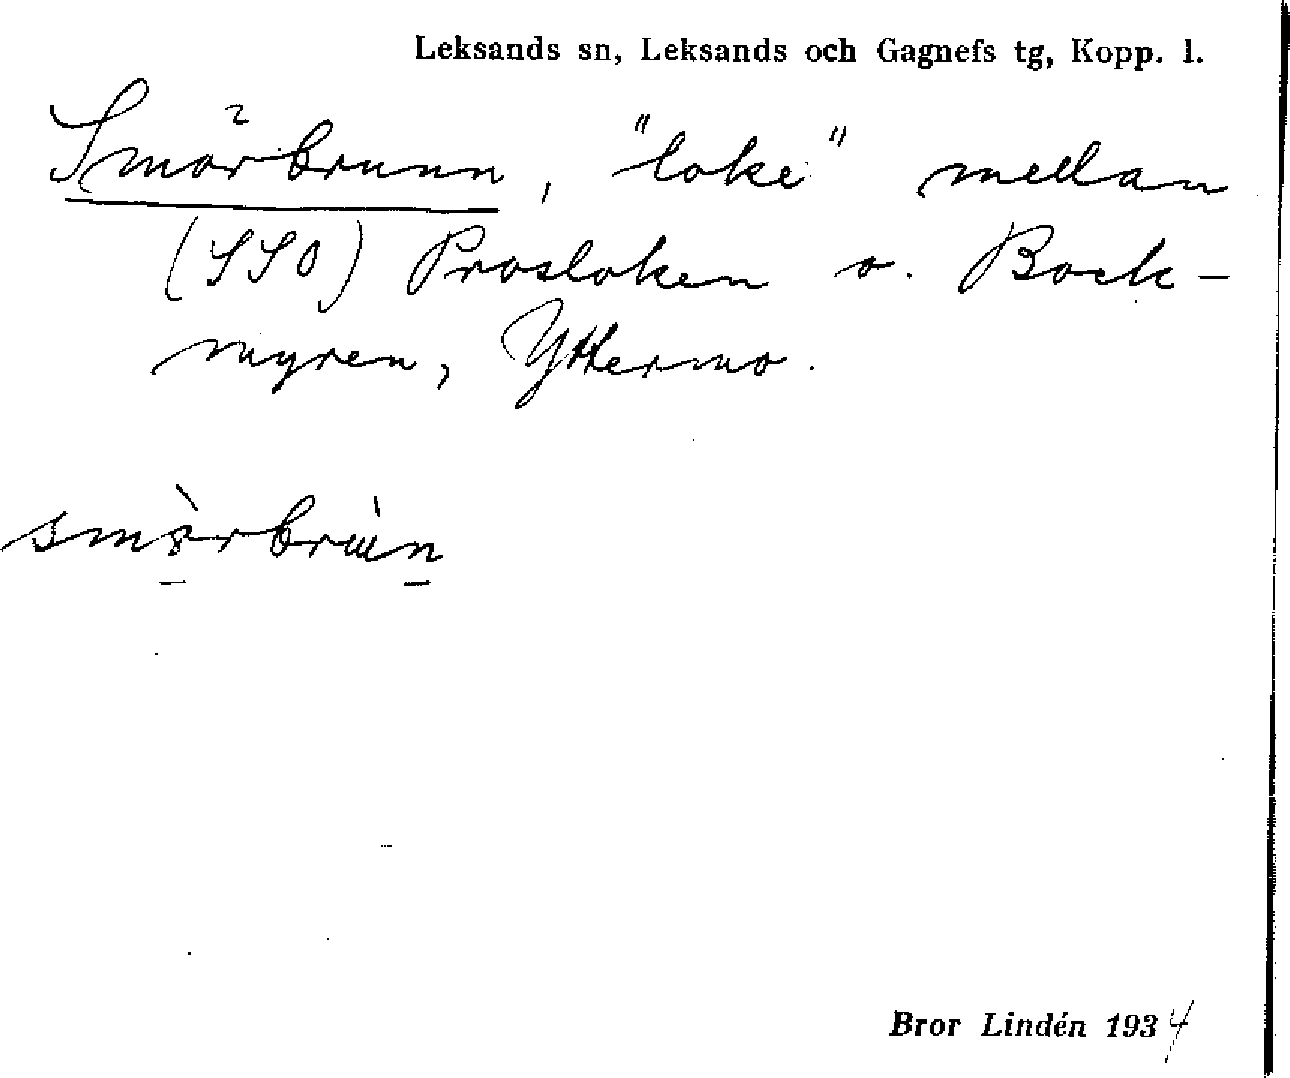 Leksands sn, Leksands och Gagnefs tg, Kopp. l.
Smörbrunn, "loke" mellan
(SSO) Prosloken o. Bock-
myren, Yttermo.
smörbrùn
Bror Lindén 1934